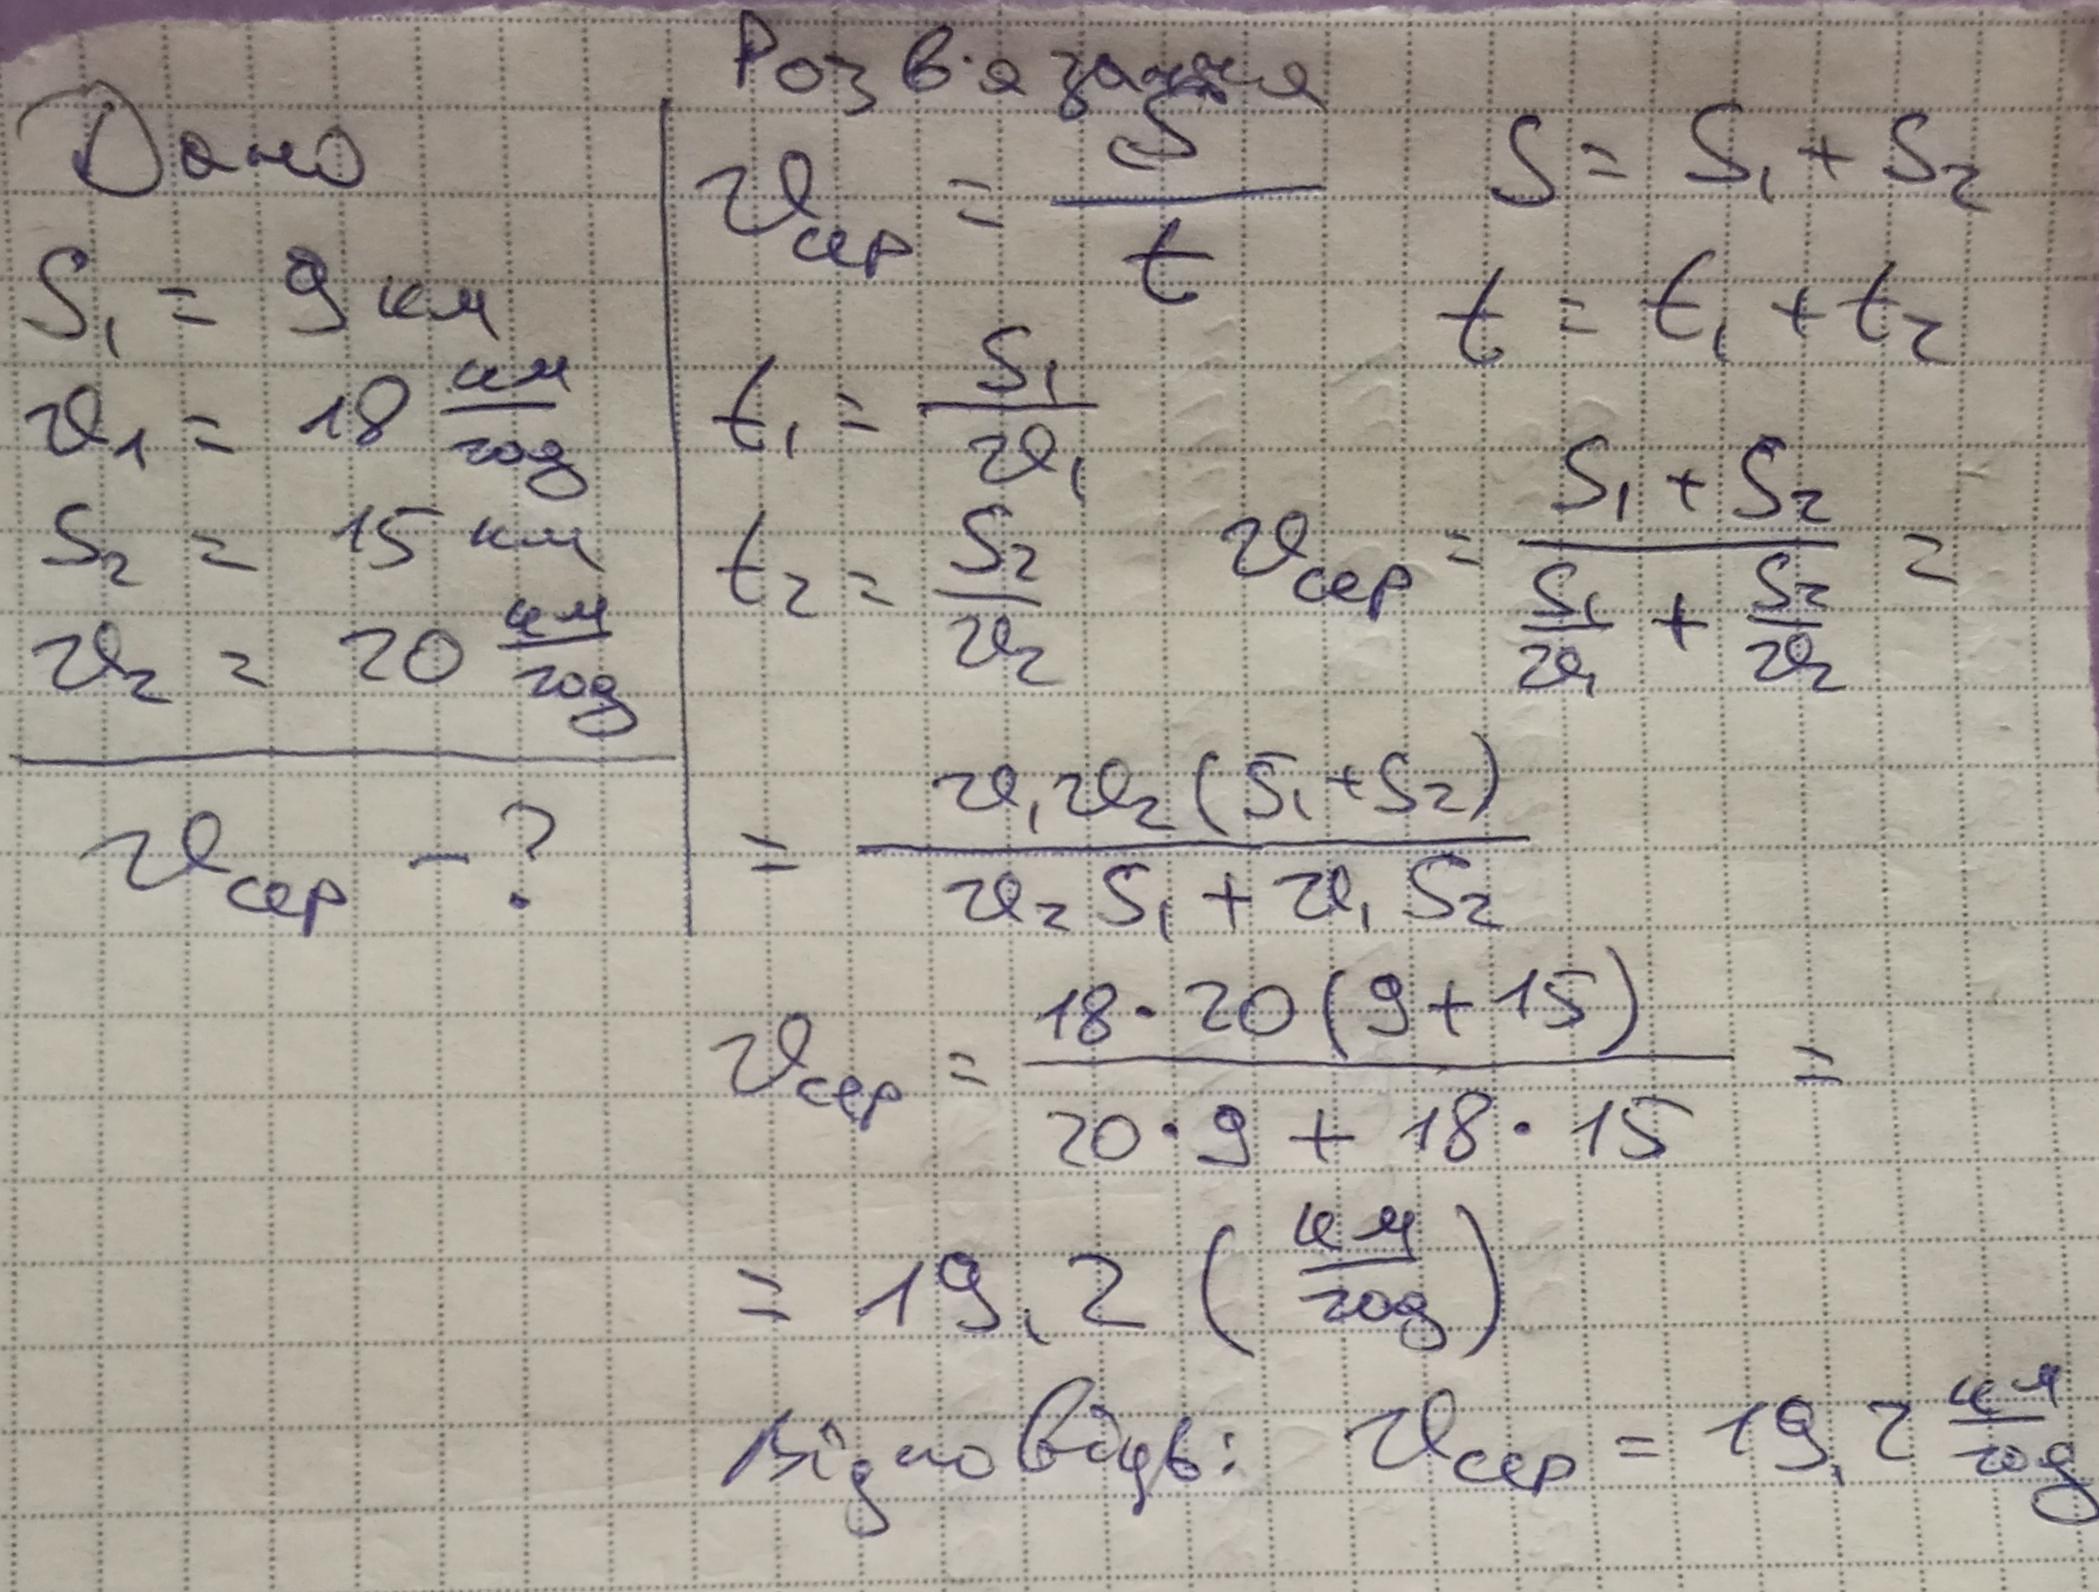 Дано
S₁ = 9 км
υ₁ = 18 км/год
S₂ = 15 км
υ₂ = 20 км/год
υсер - ?
Розв'язання
υсер = S/t    S = S₁ + S₂
t = t₁ + t₂
t₁ = S₁/υ₁
t₂ = S₂/υ₂    υсер = (S₁ + S₂)/(S₁/υ₁ + S₂/υ₂) =
= υ₁υ₂(S₁+S₂)/(υ₂S₁ + υ₁S₂)
υсер = 18·20(9+15)/(20·9 + 18·15) =
= 19,2 (км/год)
Відповідь: υсер = 19,2 км/год